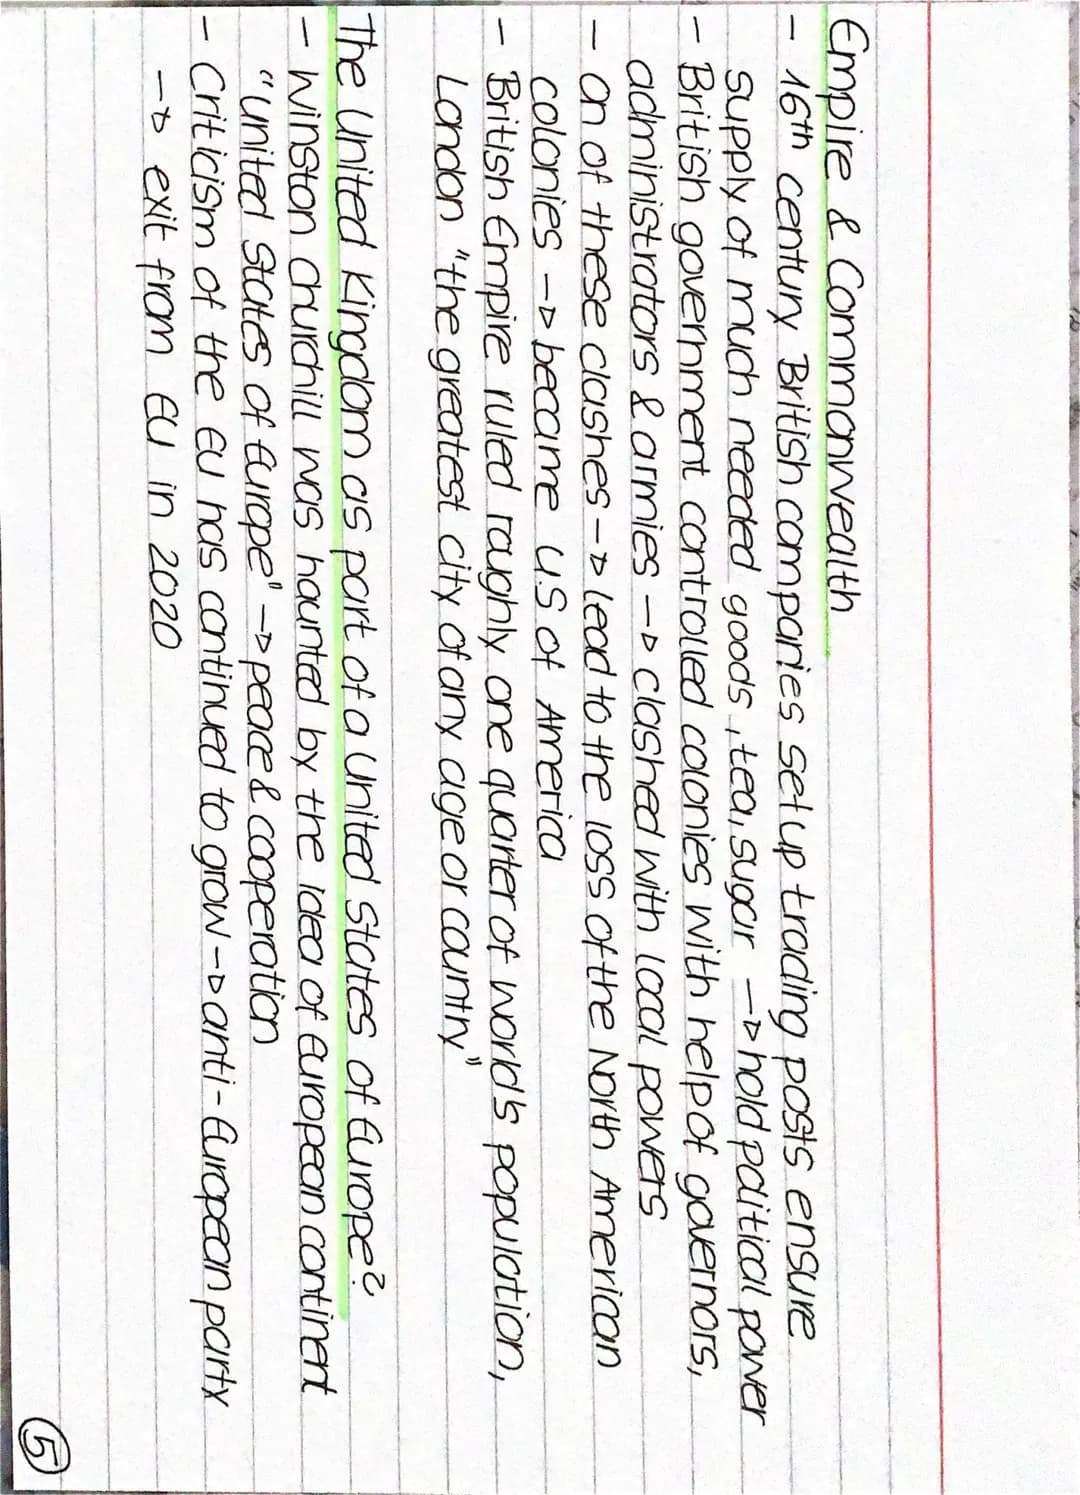 Empire & Commonwealth
- 16th century British companies set up trading posts ensure
supply of much needed goods, tea, sugar -> hold political power
- British government controlled colonies with help of governors,
administrators & armies -> clashed with local powers
- on of these clashes -> lead to the loss of the North American
colonies -> became U.S of America
- British Empire ruled roughly one quarter of world's population,
London "the greatest city of any age or country"
The United Kingdom as part of a United States of Europe?
- Winston Churchill was haunted by the idea of European continent
"United States of Europe" -> peace & cooperation
- Criticism of the EU has continued to grow -> anti-European party
-> exit from EU in 2020
5